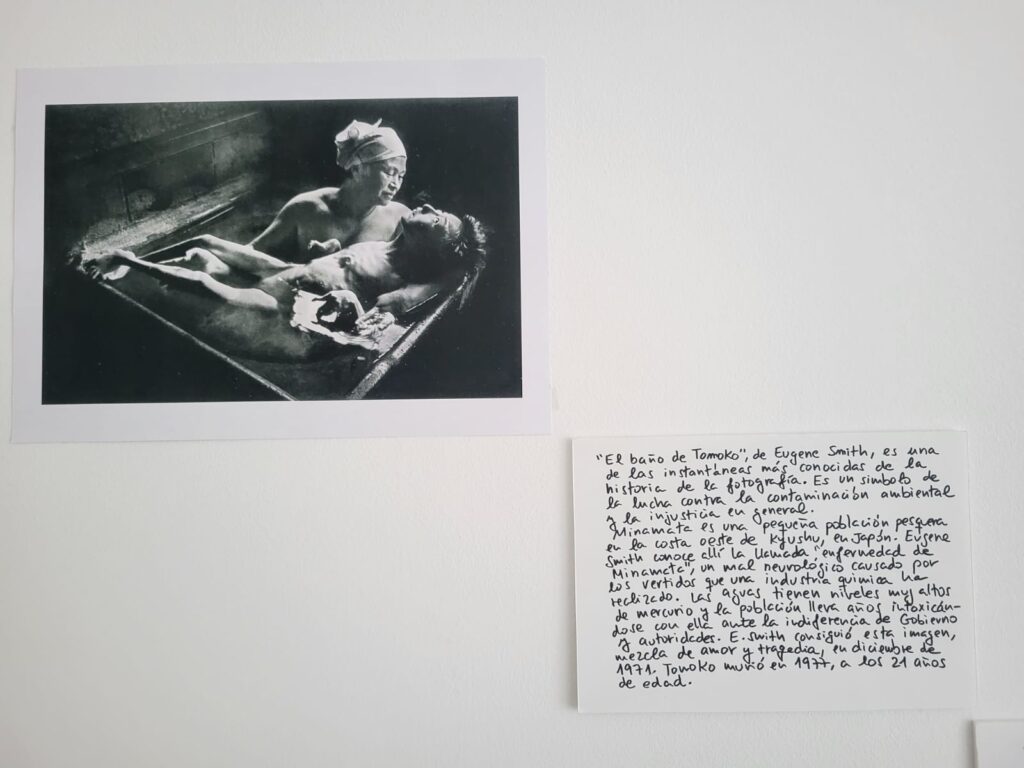 "El baño de Tomoko", de Eugene Smith, es una
de las instantáneas más conocidas de la
historia de la fotografía. Es un símbolo de
la lucha contra la contaminación ambiental
y la injusticia en general.
Minamata es una pequeña población pesquera
en la costa oeste de Kyushu, en Japón. Eugene
Smith conoce allí la llamada "enfermedad de
Minamata", un mal neurológico causado por
los vertidos que una industria química ha
realizado. Las aguas tienen niveles muy altos
de mercurio y la población lleva años intoxicán-
dose con ella ante la indiferencia de Gobierno
y autoridades. E. Smith consiguió esta imagen,
mezcla de amor y tragedia, en diciembre de
1971. Tomoko murió en 1977, a los 21 años
de edad.